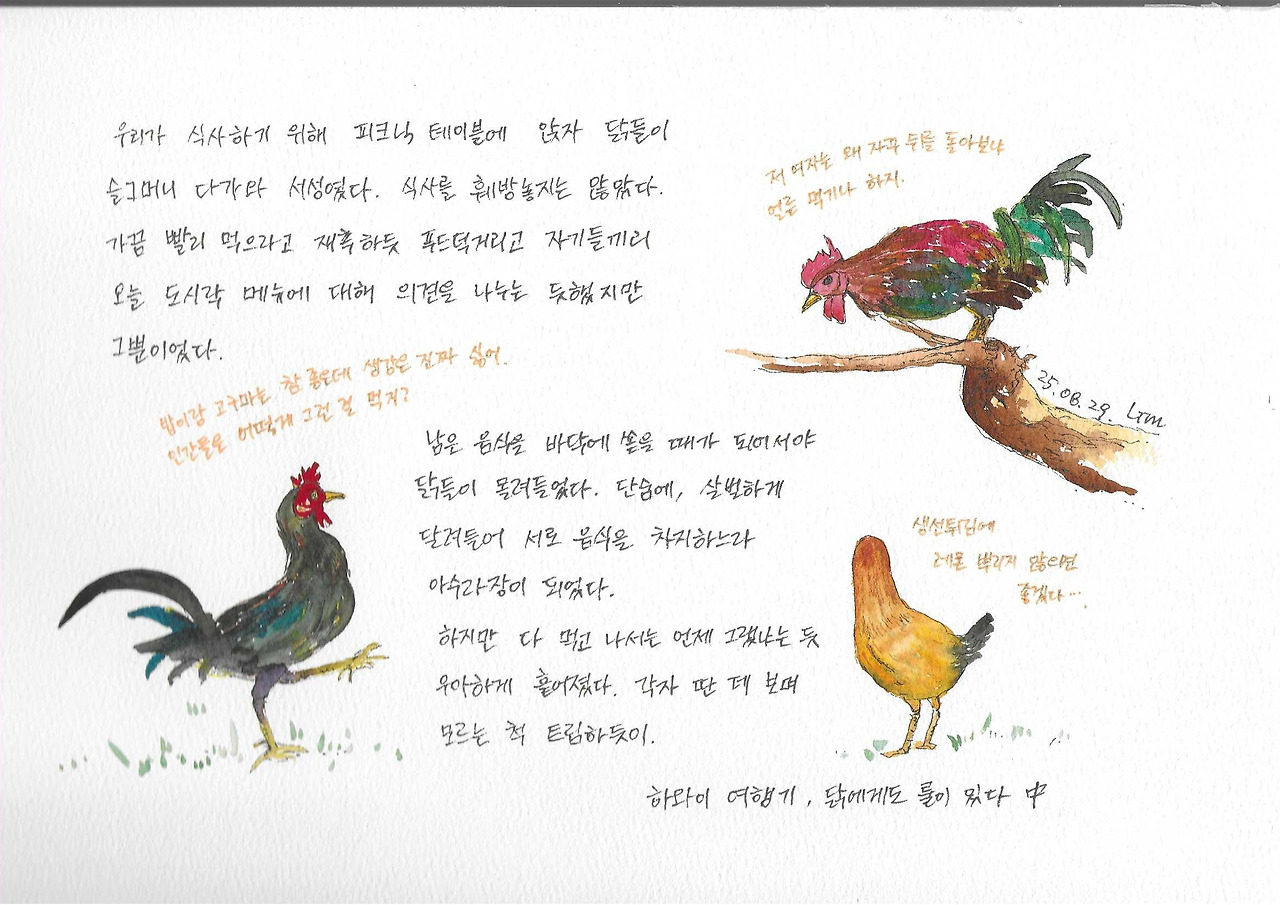 우리가 식사하기 위해 피크닉 테이블에 앉자 닭들이
슬그머니 다가와 서성였다. 식사를 훼방놓지는 않았다.
가끔 빨리 먹으라고 재촉하듯 푸드덕거리고 자기들끼리
오늘 도시락 메뉴에 대해 의견을 나누는 듯했지만
그뿐이었다.
저 여자는 왜 자꾸 뒤를 돌아보나
얼른 먹기나 하지.
25.08.29. Lim
밥이랑 고구마는 참 좋은데 생강은 진짜 싫어.
인간들은 어떻게 그런 걸 먹지?
남은 음식을 바닥에 쏟을 때가 되어서야
닭들이 몰려들었다. 단숨에, 살벌하게
달려들어 서로 음식을 차지하느라
아수라장이 되었다.
하지만 다 먹고 나서는 언제 그랬냐는 듯
우아하게 흩어졌다. 각자 딴 데 보며
모르는 척 트림하듯이.
생선튀김에
레몬 뿌리지 않으면
좋겠다...
하와이 여행기, 닭에게도 룰이 있다 中